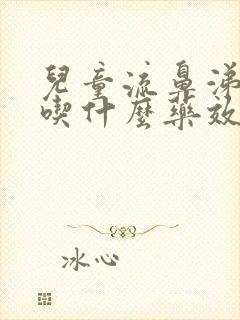 兒童流鼻涕
喫什麼藥效
冰心